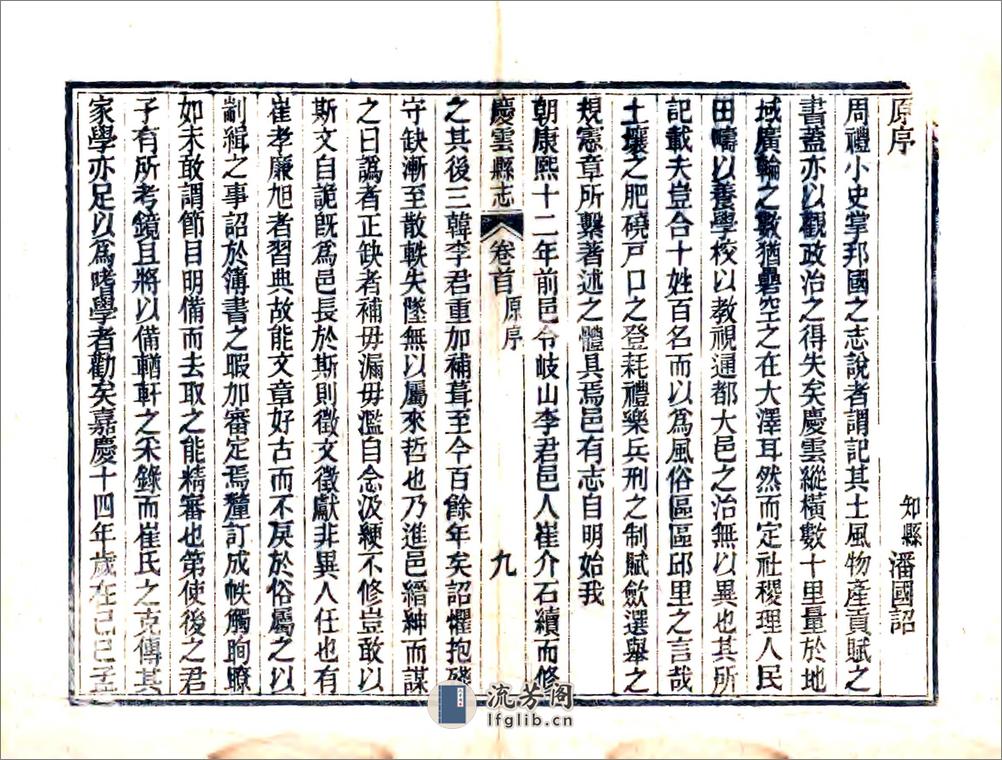 原序
知縣潘國詔
周禮小史掌邦國之志說者謂記其土風物產貢賦之
書蓋亦以觀政治之得失矣慶雲縱橫數十里量於地
域廣輪之數猶礨空之在大澤耳然而定社稷理人民
田疇以養學校以教視通都大邑之治無以異也其所
記載夫豈合十姓百名而以爲風俗區區邱里之言哉
土壤之肥磽戸口之登耗禮樂兵刑之制賦歛選舉之
規憲章所繫著述之體具焉邑有志自明始我
朝康熙十二年前邑令岐山李君邑人崔介石續而修
慶雲縣志 卷首 原序 九
之其後三韓李君重加補葺至今百餘年矣詔懼抱殘
守缺漸至散軼失墜無以屬來哲也乃進邑縉紳而謀
之曰譌者正缺者補毋漏毋濫自念汲綆不修豈敢以
斯文自詭旣爲邑長於斯則徵文徵獻非異人任也有
崔孝廉旭者習典故能文章好古而不戾於俗屬之以
劀緝之事詔於簿書之暇加審定焉釐訂成帙觸眴瞭
如未敢謂節目明備而去取之能精審也第使後之君
子有所考鏡且將以備輶軒之采錄而崔氏之克傳其
家學亦足以爲嗜學者勸矣嘉慶十四年歲在己巳孟
流芳阁
lfglib.cn